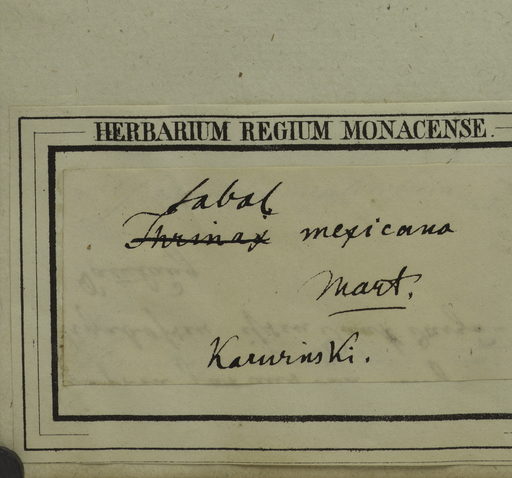 HERBARIUM REGIUM MONACENSE.
Sabal
Thrinax mexicana
Mart.
Karwinski.